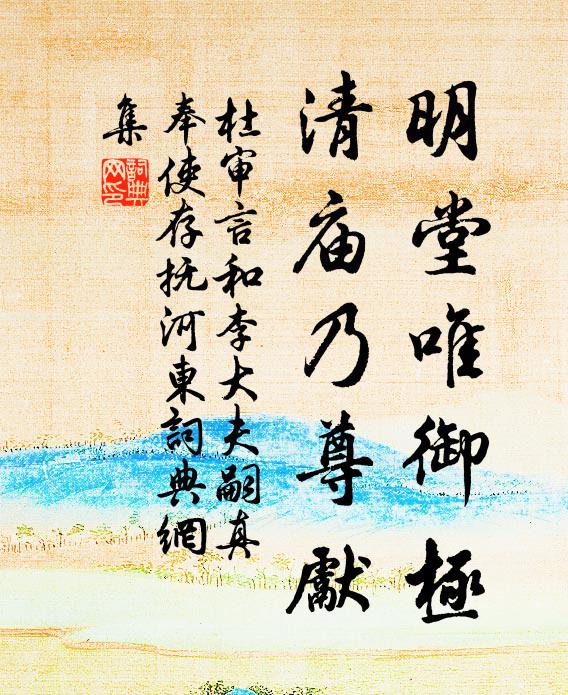 明堂唯御極
清庙乃尊獻
杜审言和李大夫嗣真
奉使存抚河東詞典網
集
詞典
网印